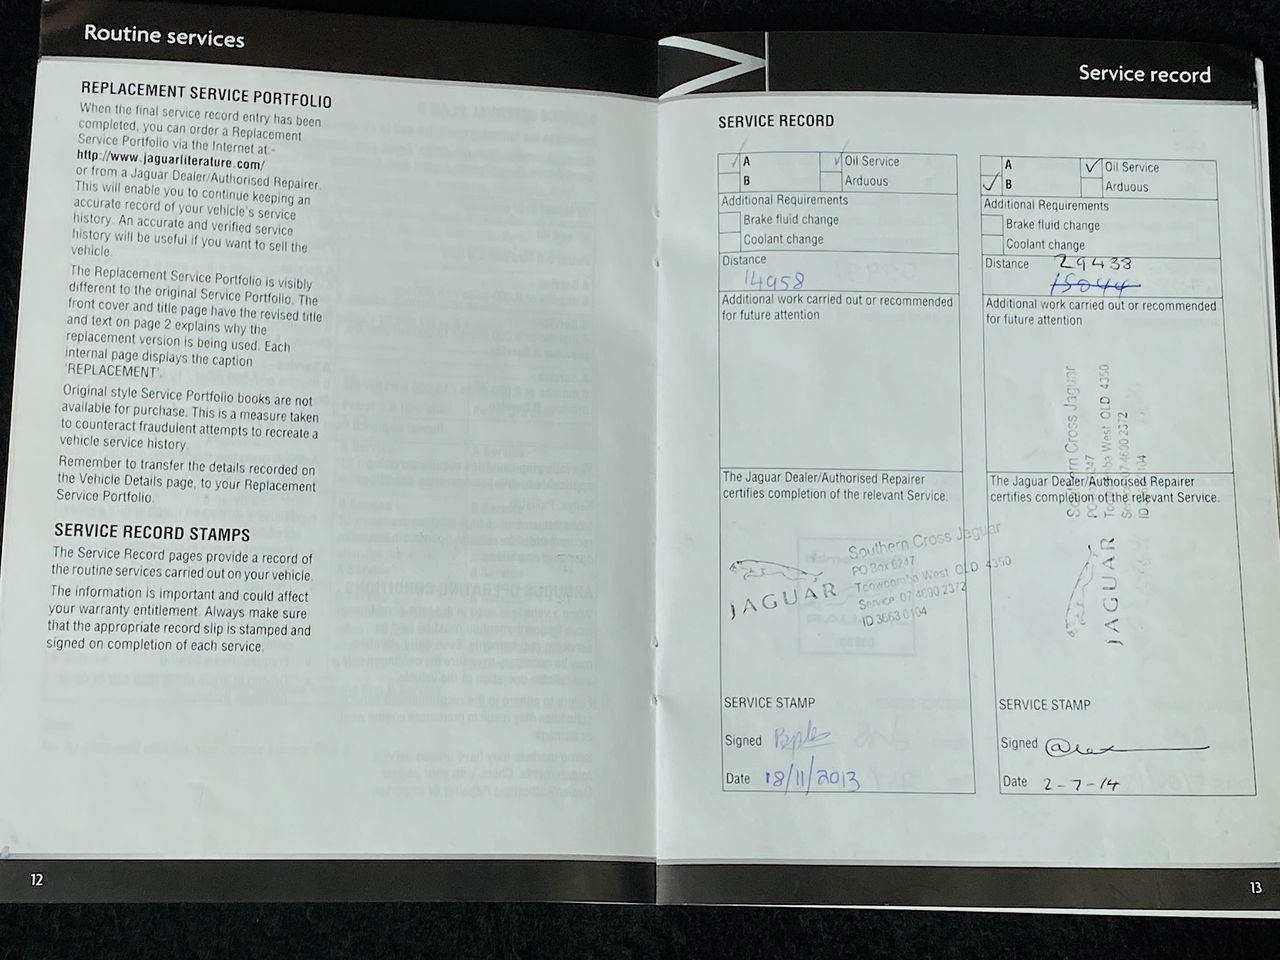 Routine services
REPLACEMENT SERVICE PORTFOLIO
When the final service record entry has been
completed, you can order a Replacement
Service Portfolio via the Internet at:-
http://www.jaguarliterature.com/
or from a Jaguar Dealer/Authorised Repairer.
This will enable you to continue keeping an
accurate record of your vehicle's service
history. An accurate and verified service
history will be useful if you want to sell the
vehicle.
The Replacement Service Portfolio is visibly
different to the original Service Portfolio. The
front cover and title page have the revised title
and text on page 2 explains why the
replacement version is being used. Each
internal page displays the caption
'REPLACEMENT'.
Original style Service Portfolio books are not
available for purchase. This is a measure taken
to counteract fraudulent attempts to recreate a
vehicle service history.
Remember to transfer the details recorded on
the Vehicle Details page, to your Replacement
Service Portfolio.
SERVICE RECORD STAMPS
The Service Record pages provide a record of
the routine services carried out on your vehicle.
The information is important and could affect
your warranty entitlement. Always make sure
that the appropriate record slip is stamped and
signed on completion of each service.
12
Service record
SERVICE RECORD
A Oil Service
B Arduous
Additional Requirements
Brake fluid change
Coolant change
Distance
14958
Additional work carried out or recommended
for future attention
The Jaguar Dealer/Authorised Repairer
certifies completion of the relevant Service.
JAGUAR
Southern Cross Jaguar
PO Box 6247
Toowoomba West QLD 4350
Service 07 4690 2372
ID 3663 0104
SERVICE STAMP
Signed
Date 18/11/2013
A Oil Service
B Arduous
Additional Requirements
Brake fluid change
Coolant change
Distance 29438
15044
Additional work carried out or recommended
for future attention
The Jaguar Dealer/Authorised Repairer
certifies completion of the relevant Service.
JAGUAR
Southern Cross Jaguar
Toowoomba West QLD 4350
07 4690 2372
SERVICE STAMP
Signed
Date 2-7-14
13